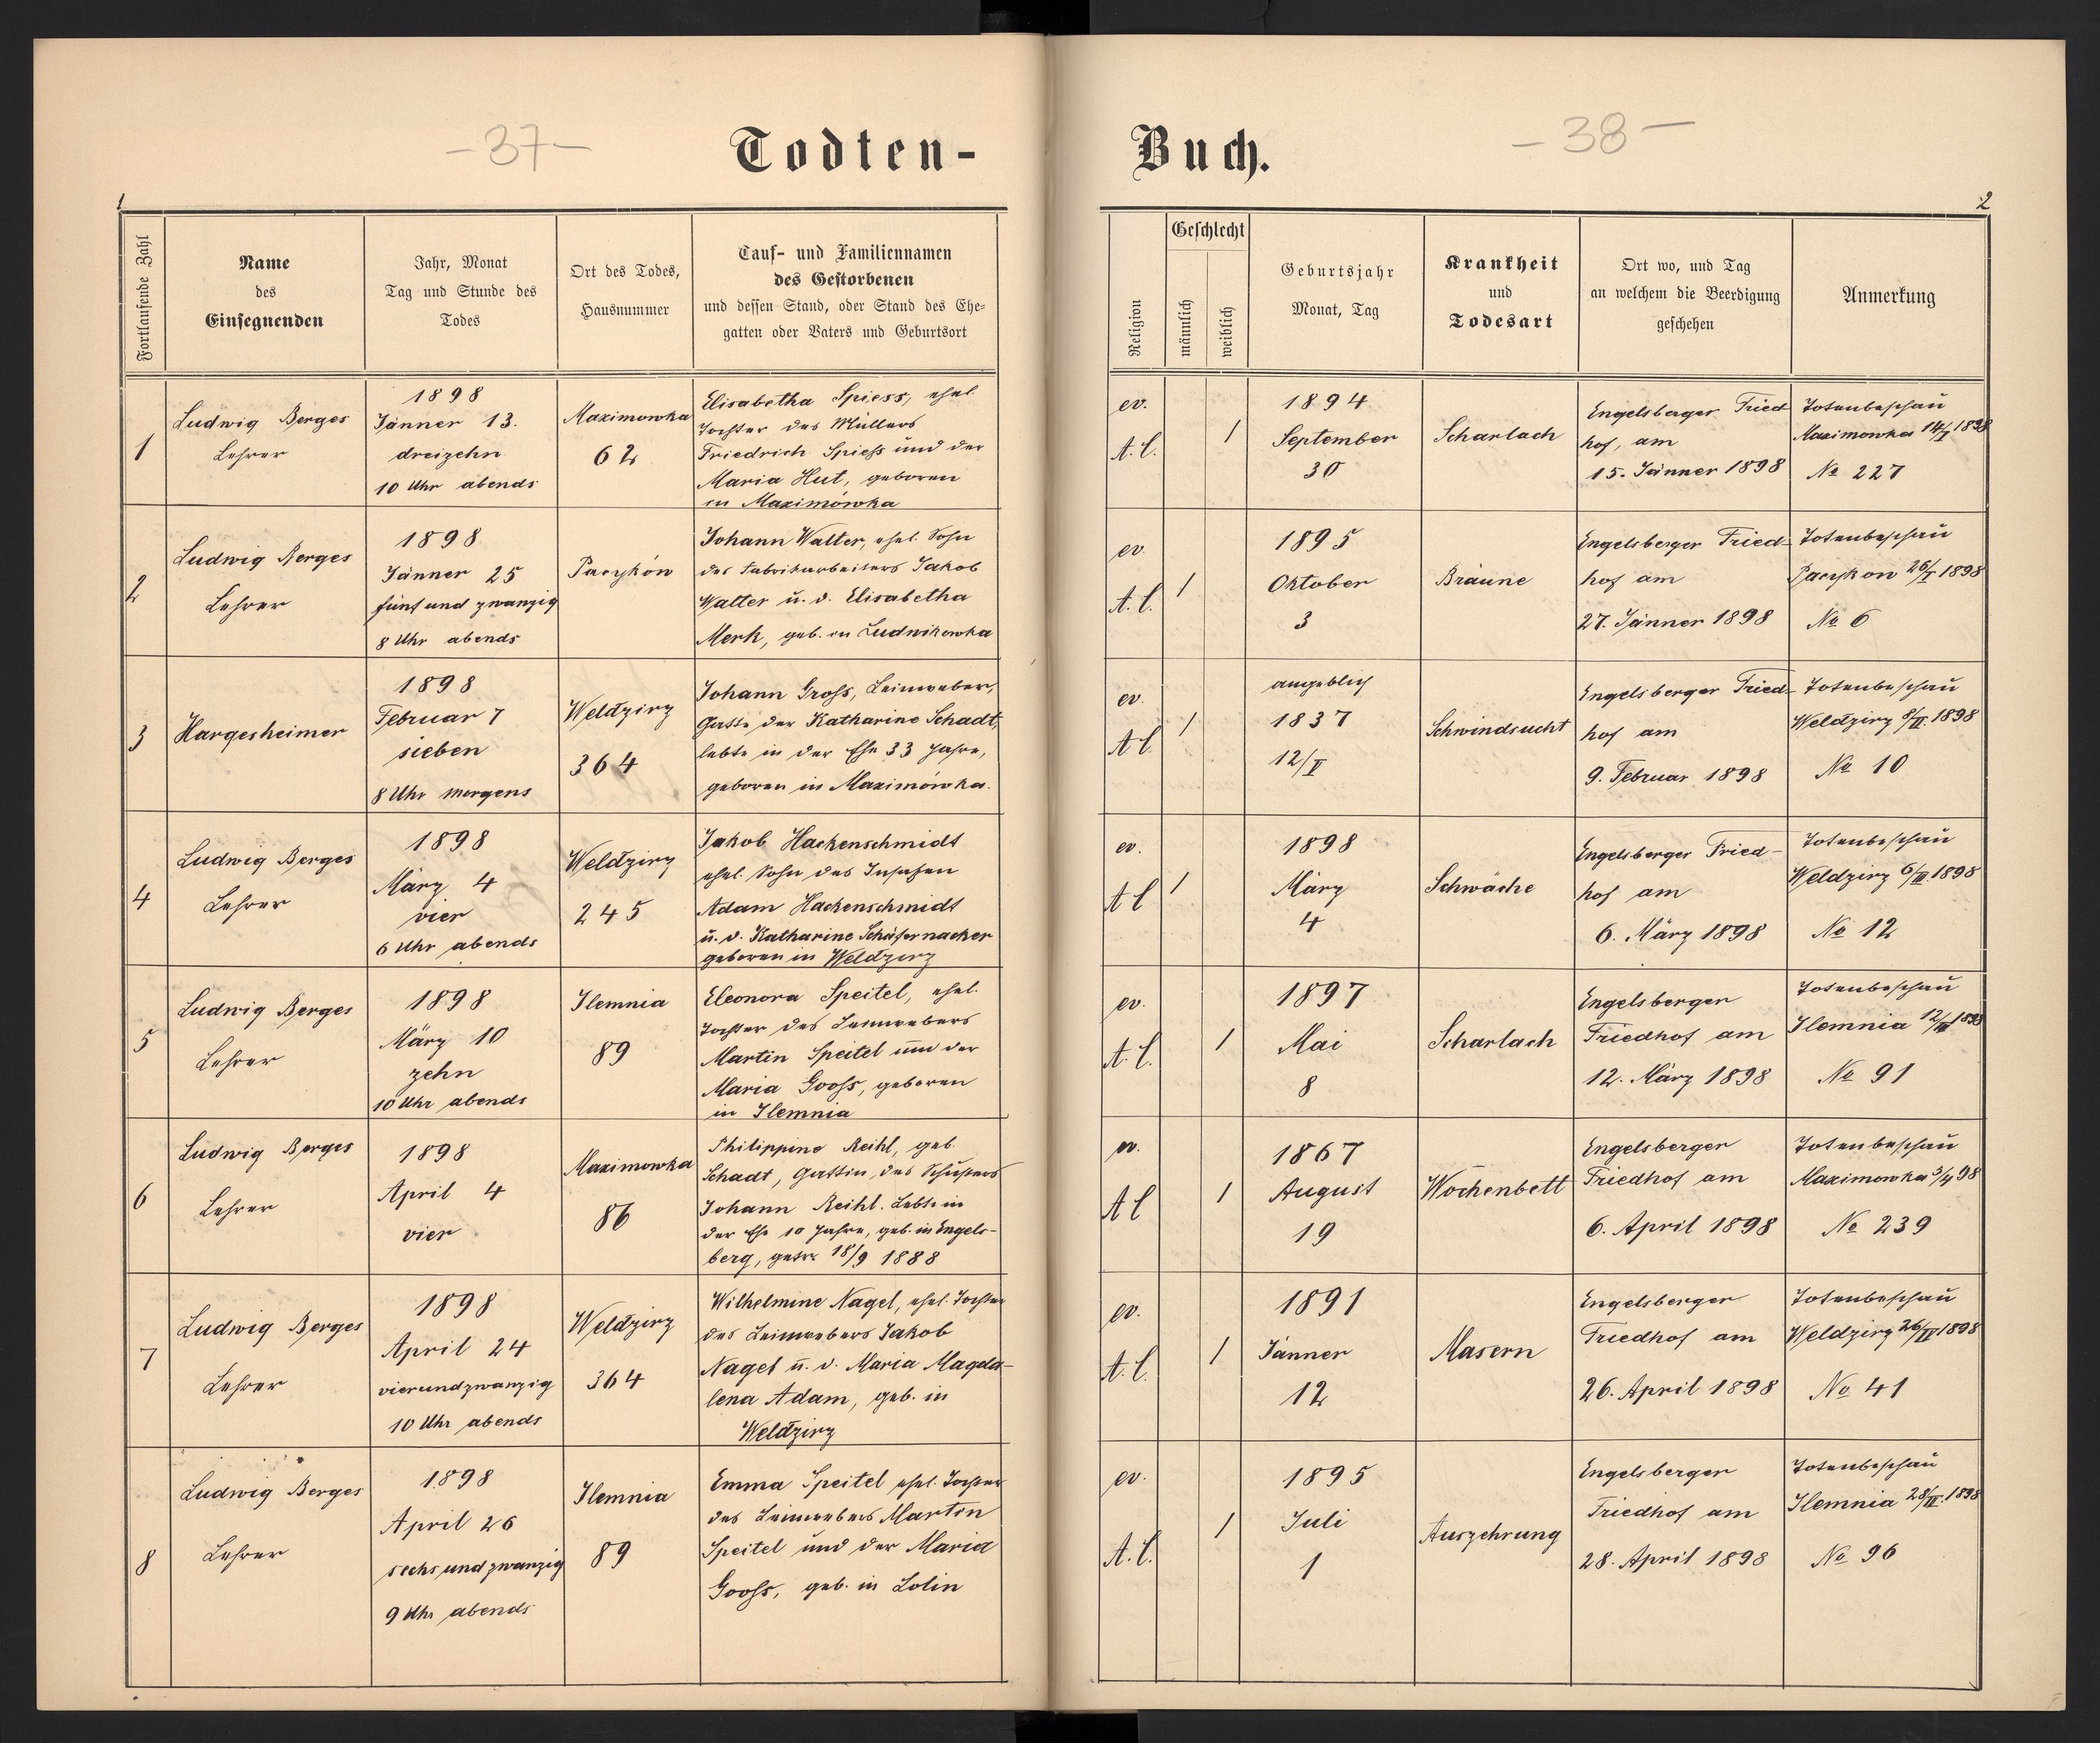 -37-
Todten-
1
Fortlaufende Zahl
Name
des
Einsegnenden
Jahr, Monat
Tag und Stunde des
Todes
Ort des Todes,
Hausnummer
Tauf- und Familiennamen
des Gestorbenen
und dessen Stand, oder Stand des Ehe-
gatten oder Vaters und Geburtsort
1
Ludwig Berges
Lehrer
1898
Jänner 13.
dreizehn
10 Uhr abends
Maximowka
62
Elisabetha Spiess, ehel.
Tochter des Müllers
Friedrich Spiess und der
Maria Hut, geboren
in Maximówka
2
Ludwig Berges
Lehrer
1898
Jänner 25
fünf und zwanzig
8 Uhr abends
Pacykón
Johann Walter, ehel. Sohn
des Fabrikarbeiters Jakob
Walter u. d. Elisabetha
Merk, geb. in Ludwikowka
3
Hargesheimer
1898
Februar 7
sieben
8 Uhr morgens
Weldzirz
364
Johann Gross, Leinweber,
Gatte der Katharine Schadt,
lebte in der Ehe 33 Jahre,
geboren in Maximówka.
4
Ludwig Berges
Lehrer
1898
März 4
vier
6 Uhr abends
Weldzirz
245
Jakob Hackenschmidt
ehel. Sohn des Insassen
Adam Hackenschmidt
u. d. Katharine Schäfernacker
geboren in Weldzirz
5
Ludwig Berges
Lehrer
1898
März 10
zehn
10 Uhr abends
Ilemnia
89
Eleonora Speitel, ehel.
Tochter des Leinwebers
Martin Speitel und der
Maria Gooss, geboren
in Ilemnia
6
Ludwig Berges
Lehrer
1898
April 4
vier
Maximowka
86
Philippine Reihl, geb.
Schadt, Gattin des Schusters
Johann Reihl. Lebte in
der Ehe 10 Jahre, geb. in Engels-
berg, getr. 18/9 1888
7
Ludwig Berges
Lehrer
1898
April 24
vierundzwanzig
10 Uhr abends
Weldzirz
364
Wilhelmine Nagel, ehel. Tochter
des Leinwebers Jakob
Nagel u. d. Maria Magda-
lena Adam, geb. in
Weldzirz
8
Ludwig Berges
Lehrer
1898
April 26
sechs und zwanzig
9 Uhr abends
Ilemnia
89
Emma Speitel ehel. Tochter
des Leinwebers Martin
Speitel und der Maria
Gooss, geb. in Lolin
-38-
Buch.
2
Religion
Geschlecht
männlich
weiblich
Geburtsjahr
Monat, Tag
Krankheit
und
Todesart
Ort wo, und Tag
an welchem die Beerdigung
geschehen
Anmerkung
ev.
A. C.
1
1894
September
30
Scharlach
Engelsberger Fried
hof, am
15. Jänner 1898
Totenbeschau
Maximowka 14/I 1898
No 227
ev.
A. C.
1
1895
Oktober
3
Bräune
Engelsberger Fried-
hof am
27. Jänner 1898
Totenbeschau
Pacykon 26/I 1898
No 6
ev.
A C.
1
angeblich
1837
12/I
Schwindsucht
Engelsberger Fried-
hof am
9. Februar 1898
Totenbeschau
Weldzirz 8/II. 1898
No 10
ev.
A C
1
1898
März
4
Schwäche
Engelsberger Fried-
hof am
6. März 1898
Totenbeschau
Weldzirz 6/III. 1898
No 12
ev.
A. C.
1
1897
Mai
8
Scharlach
Engelsberger
Friedhof am
12. März 1898
Totenbeschau
Ilemnia 12/III 1898
No 91
ev.
A C
1
1867
August
19
Wochenbett
Engelsberger
Friedhof am
6. April 1898
Totenbeschau
Maximowka 5/4 98
No 239
ev.
A. C.
1
1891
Jänner
12
Masern
Engelsberger
Friedhof am
26. April 1898
Totenbeschau
Weldzirz 26/IV 1898
No 41
ev.
A. C.
1
1895
Juli
1
Auszehrung
Engelsberger
Friedhof am
28. April 1898
Totenbeschau
Ilemnia 28/IV. 1898
No 96